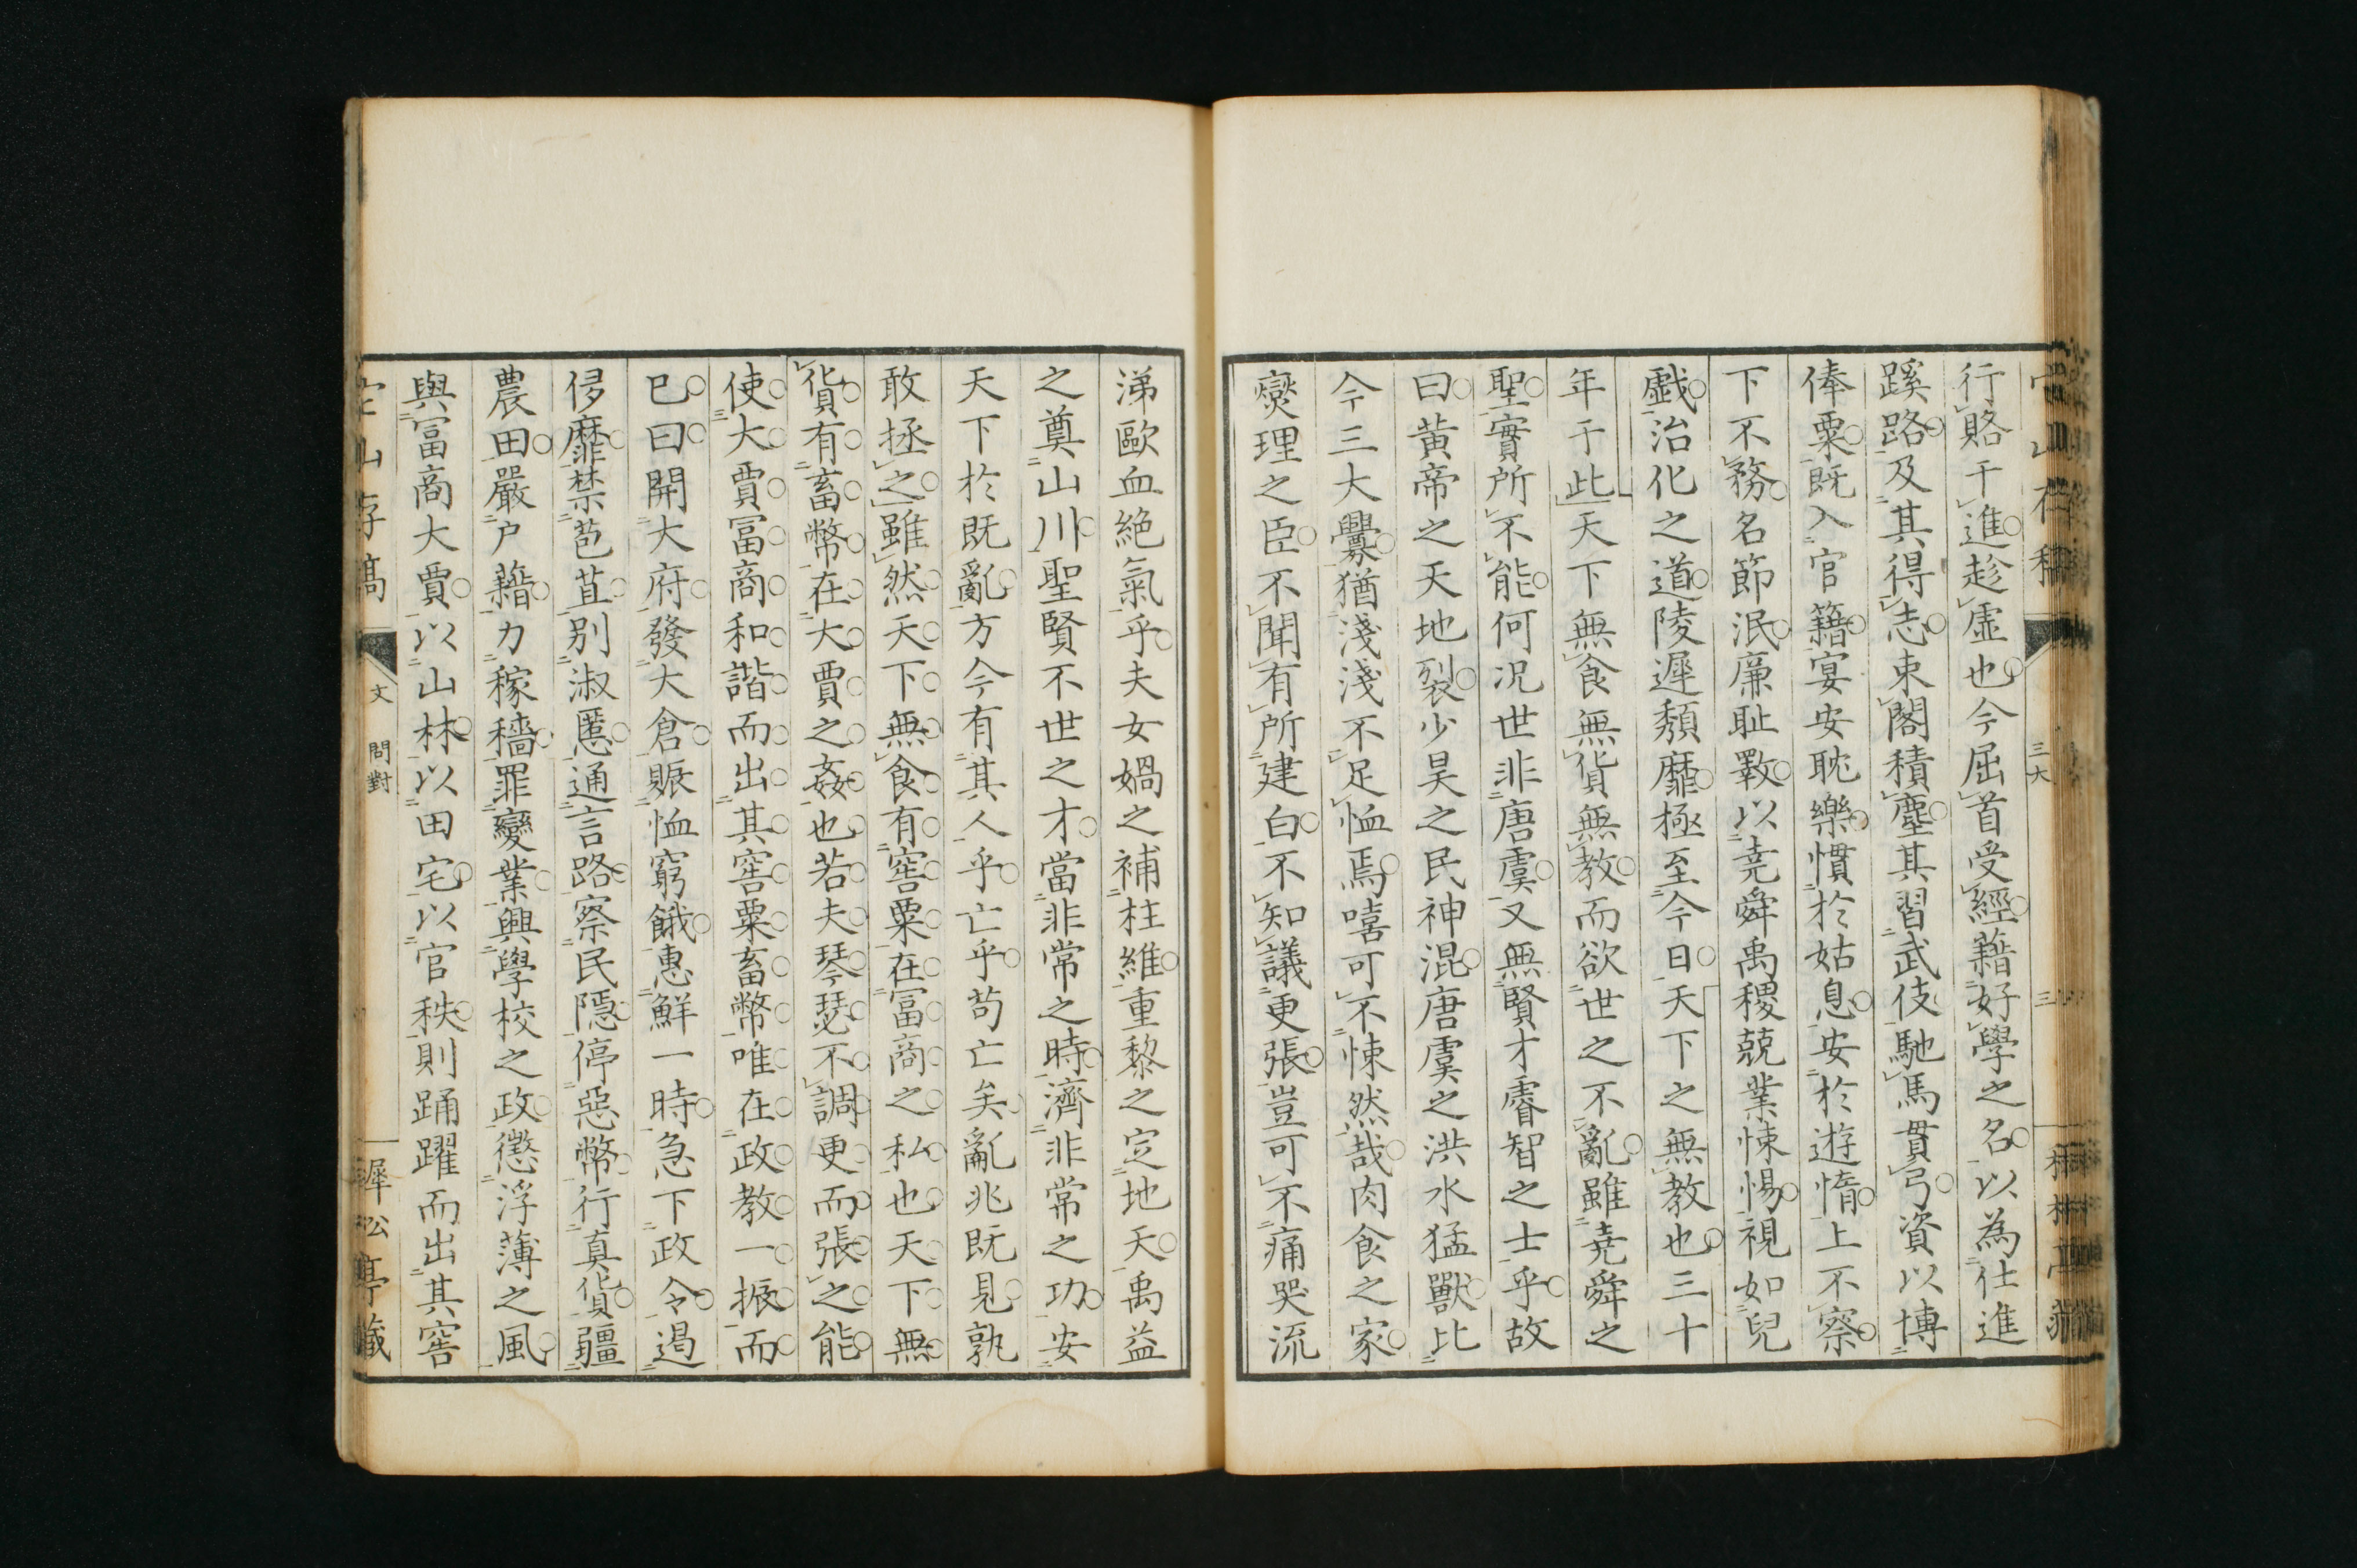 行賂干進趁虛也今屈首受經藉好學之名以為仕進
蹊路及其得志束閣積塵其習武伎馳馬貫弓資以博
俸粟既入官籍宴安耽樂慣於姑息安於遊惰上不察
下不務名節泯廉耻斁以堯舜禹稷兢業悚惕視如兒
戯治化之道陵遲頽靡極至今日天下之無教也三十
年于此天下無食無貨無教而欲世之不亂雖堯舜之
聖實所不能何況世非唐虞又無賢才睿智之士乎故
曰黃帝之天地裂少昊之民神混唐虞之洪水猛獸比
今三大釁猶淺淺不足恤焉嘻可不悚然哉肉食之家
爕理之臣不聞有所建白不知議更張豈可不痛哭流
涕歐血絕氣乎夫女媧之補柱維重黎之定地天禹益
之奠山川聖賢不世之才當非常之時濟非常之功安
天下於既亂方今有其人乎亡乎苟亡矣亂兆既見孰
敢拯之雖然天下無食有窖粟在冨商之私也天下無
貨有畜幣在大賈之姦也若夫琴瑟不調更而張之能
使大賈冨商和諧而出其窖粟畜幣唯在政教一振而
已曰開大府發大倉賑恤窮餓惠鮮一時急下政令遏
侈靡禁苞苴別淑慝通言路察民隱停惡幣行真貨疆
農田嚴戶藉力稼穡罪變業興學校之政懲浮薄之風
與冨商大賈以山林以田宅以官秩則踊躍而出其窖
山存稾
文 問對
犀公亭藏